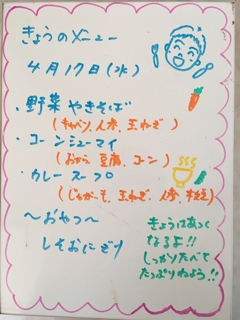 きょうのメニュー
4月17日(水)
・野菜やきそば
(キャベツ、人参、玉ねぎ)
・コーンシューマイ
(おから 豆腐、コーン)
・カレースープ
(じゃがいも、玉ねぎ、人参
〜おやつ〜
しそおにぎり
きょうはあつく
なるよ!!
しっかりたべて
たっぷりねよう!!